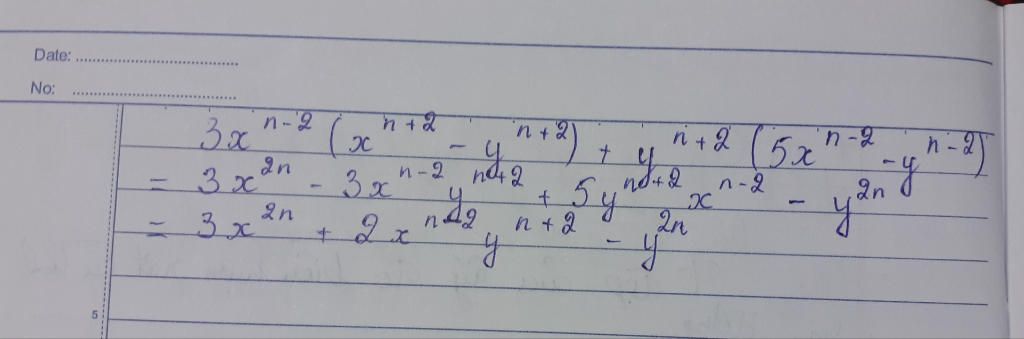 Date: ..........................................
No: ..........................................
3x^{n-2} (x^{n+2} - y^{n+2}) + y^{n+2} (5x^{n-2} - y^{n-2})
= 3x^{2n} - 3x^{n-2} y^{n+2} + 5y^{n+2} x^{n-2} - y^{2n}
= 3x^{2n} + 2x^{n-2} y^{n+2} - y^{2n}
5